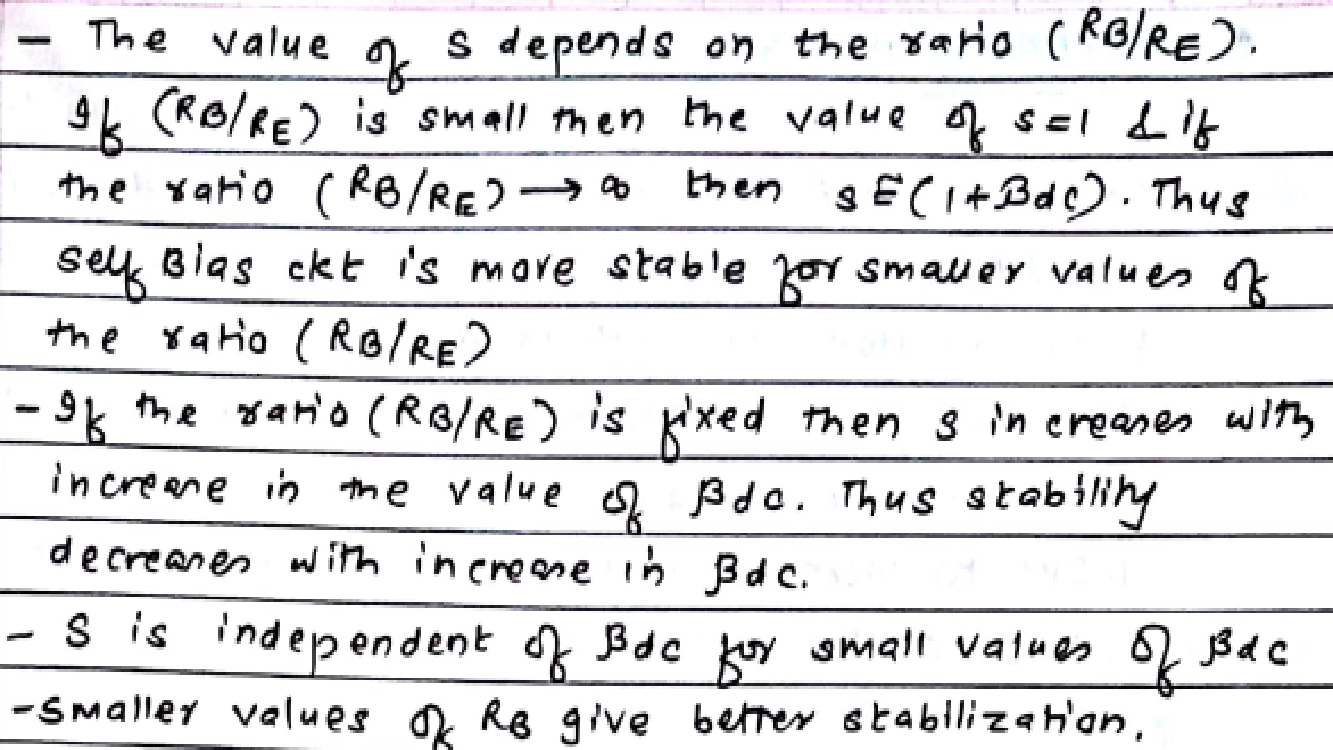 - The value of s depends on the ratio (RB/RE).
If (RB/RE) is small then the value of s=1 & if
the ratio (RB/RE) → ∞ then s E (1+βdc). Thus
self Bias ckt is more stable for smaller values of
the ratio (RB/RE)
- If the ratio (RB/RE) is fixed then s increases with
increase in the value of βdc. Thus stability
decreases with increase in βdc.
- S is independent of βdc for small values of βdc
- Smaller values of RB give better stabilization.